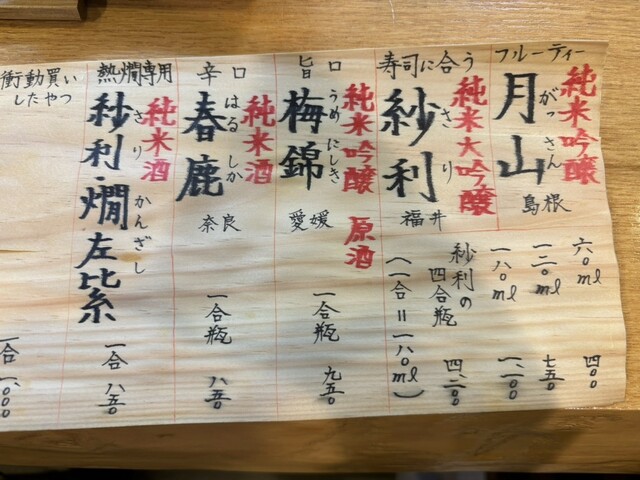 フルーティー
純米吟醸
月山
がっさん
島根
六〇ml 四〇〇
一二〇ml 七五〇
一八〇ml 一、一〇〇
寿司に合う
純米大吟醸
紗利
さり
福井
紗利の
四合瓶 四、二〇〇
(一合=一八〇ml)
旨口
純米吟醸 原酒
梅錦
うめにしき
愛媛
一合瓶 九五〇
辛口
純米酒
春鹿
はるしか
奈良
一合瓶 八五〇
熱燗専用
純米酒
紗利・燗左比糸
さり かんざし
一合 八五〇
衝動買い
したやつ
一合 一、〇〇〇